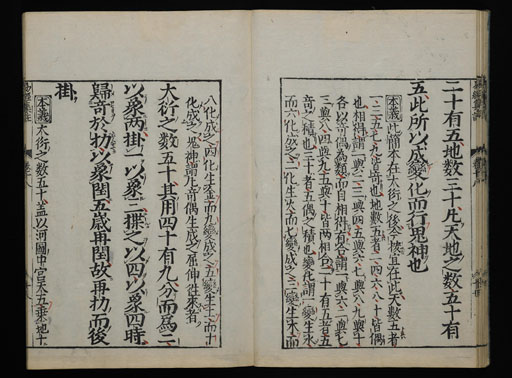 二十有五地数三十凡天地之数五十有
五此所以成變化而行鬼神也
本義此簡本在大衍之後今按宜在此天數五者
一三五七九皆奇也地數五者二四六八十皆偶
也相得謂一與二三與四五與六七與八九與十
各以奇偶為類而自相得有合謂一與六二與七
三與八四與九五與十皆兩相合二十有五者五
奇之積也三十者五偶之積也變化謂一變生水
而六化成之二化生火而七變成之三變生木而
八化成之四化生金而九變成之五變生土而十
化成之鬼神謂凡奇偶生成之屈伸往來者
大衍之数五十其用四十有九分而為二
以象兩掛一以象三揲之以四以象四時
歸奇於扐以象閏五歳再閏故再扐而後
掛
本義大衍之數五十蓋以河圖中宮天五乗地十